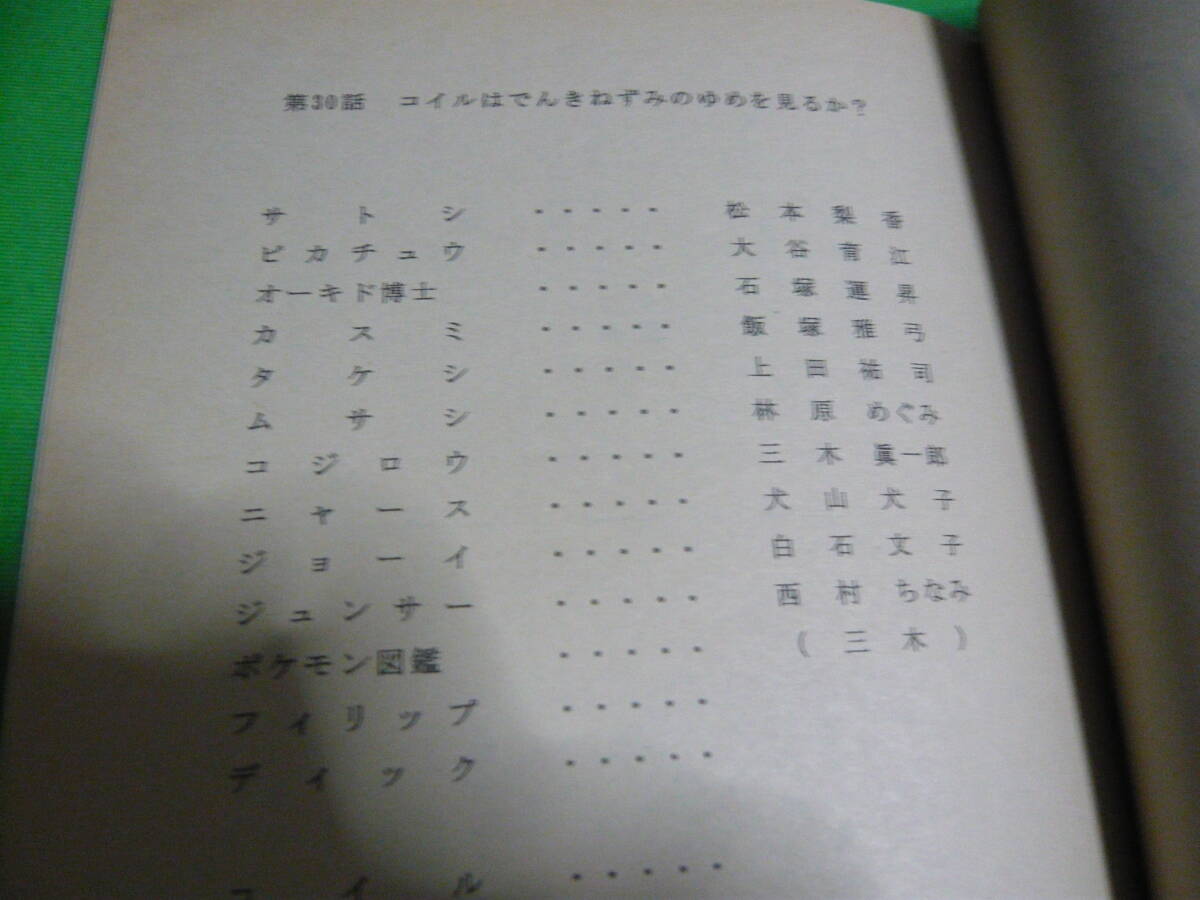 第30話 コイルはでんきねずみのゆめを見るか?
サトシ ・・・・・ 松本梨香
ピカチュウ ・・・・・ 大谷育江
オーキド博士 ・・・・・ 石塚運昇
カスミ ・・・・・ 飯塚雅弓
タケシ ・・・・・ 上田祐司
ムサシ ・・・・・ 林原めぐみ
コジロウ ・・・・・ 三木眞一郎
ニャース ・・・・・ 犬山犬子
ジョーイ ・・・・・ 白石文子
ジュンサー ・・・・・ 西村ちなみ
ポケモン図鑑 ・・・・・ (三木)
フィリップ ・・・・・
ディック ・・・・・
コイル ・・・・・